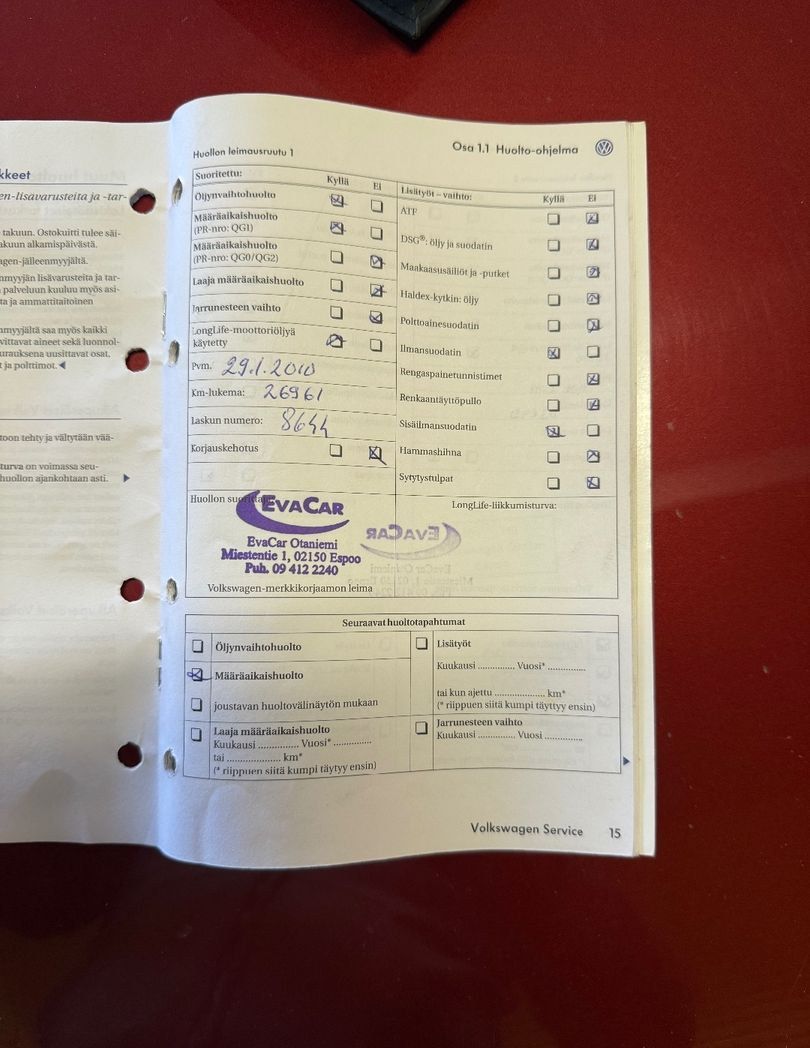 kkeet
en-lisavarusteita ja -tar-
takuun. Ostokuitti tulee säi-
akuun alkamispäivästä.
agen-jälleenmyyjältä.
nmyyjän lisävarusteita ja tar-
palveluun kuuluu myös asi-
ta ja ammattitaitoinen
nmyyjältä saa myös kaikki
vittavat aineet sekä luonnol-
urauksena uusittavat osat,
t ja polttimot.
toon tehty ja vältytään vää-
turva on voimassa seu-
huollon ajankohtaan asti.
Huollon leimausruutu 1
Osa 1.1 Huolto-ohjelma
Suoritettu:
Kyllä Ei
Öljynvaihtohuolto
Määräaikaishuolto
(PR-nro: QG1)
Määräaikaishuolto
(PR-nro: QG0/QG2)
Laaja määräaikaishuolto
Jarrunesteen vaihto
LongLife-moottoriöljyä
käytetty
Pvm. 29.1.2010
Km-lukema: 26961
Laskun numero: 8644
Korjauskehotus
Huollon
EVACAR
EvaCar Otaniemi
Miestentie 1, 02150 Espoo
Puh. 09 412 2240
Volkswagen-merkkikorjaamon leima
Lisätyöt – vaihto:
Kyllä Ei
ATF
DSG®: öljy ja suodatin
Maakaasusäiliöt ja -putket
Haldex-kytkin: öljy
Polttoainesuodatin
Ilmansuodatin
Rengaspainetunnistimet
Renkaantäyttöpullo
Sisäilmansuodatin
Hammashihna
Sytytystulpat
LongLife-liikkumisturva:
Seuraavat huoltotapahtumat
Öljynvaihtohuolto
Määräaikaishuolto
joustavan huoltovälinäytön mukaan
Laaja määräaikaishuolto
Kuukausi .............. Vuosi* ..............
tai .................... km*
(* riippuen siitä kumpi täytyy ensin)
Lisätyöt
Kuukausi .............. Vuosi* ..............
tai kun ajettu ................... km*
(* riippuen siitä kumpi täyttyy ensin)
Jarrunesteen vaihto
Kuukausi .............. Vuosi ..............
Volkswagen Service 15